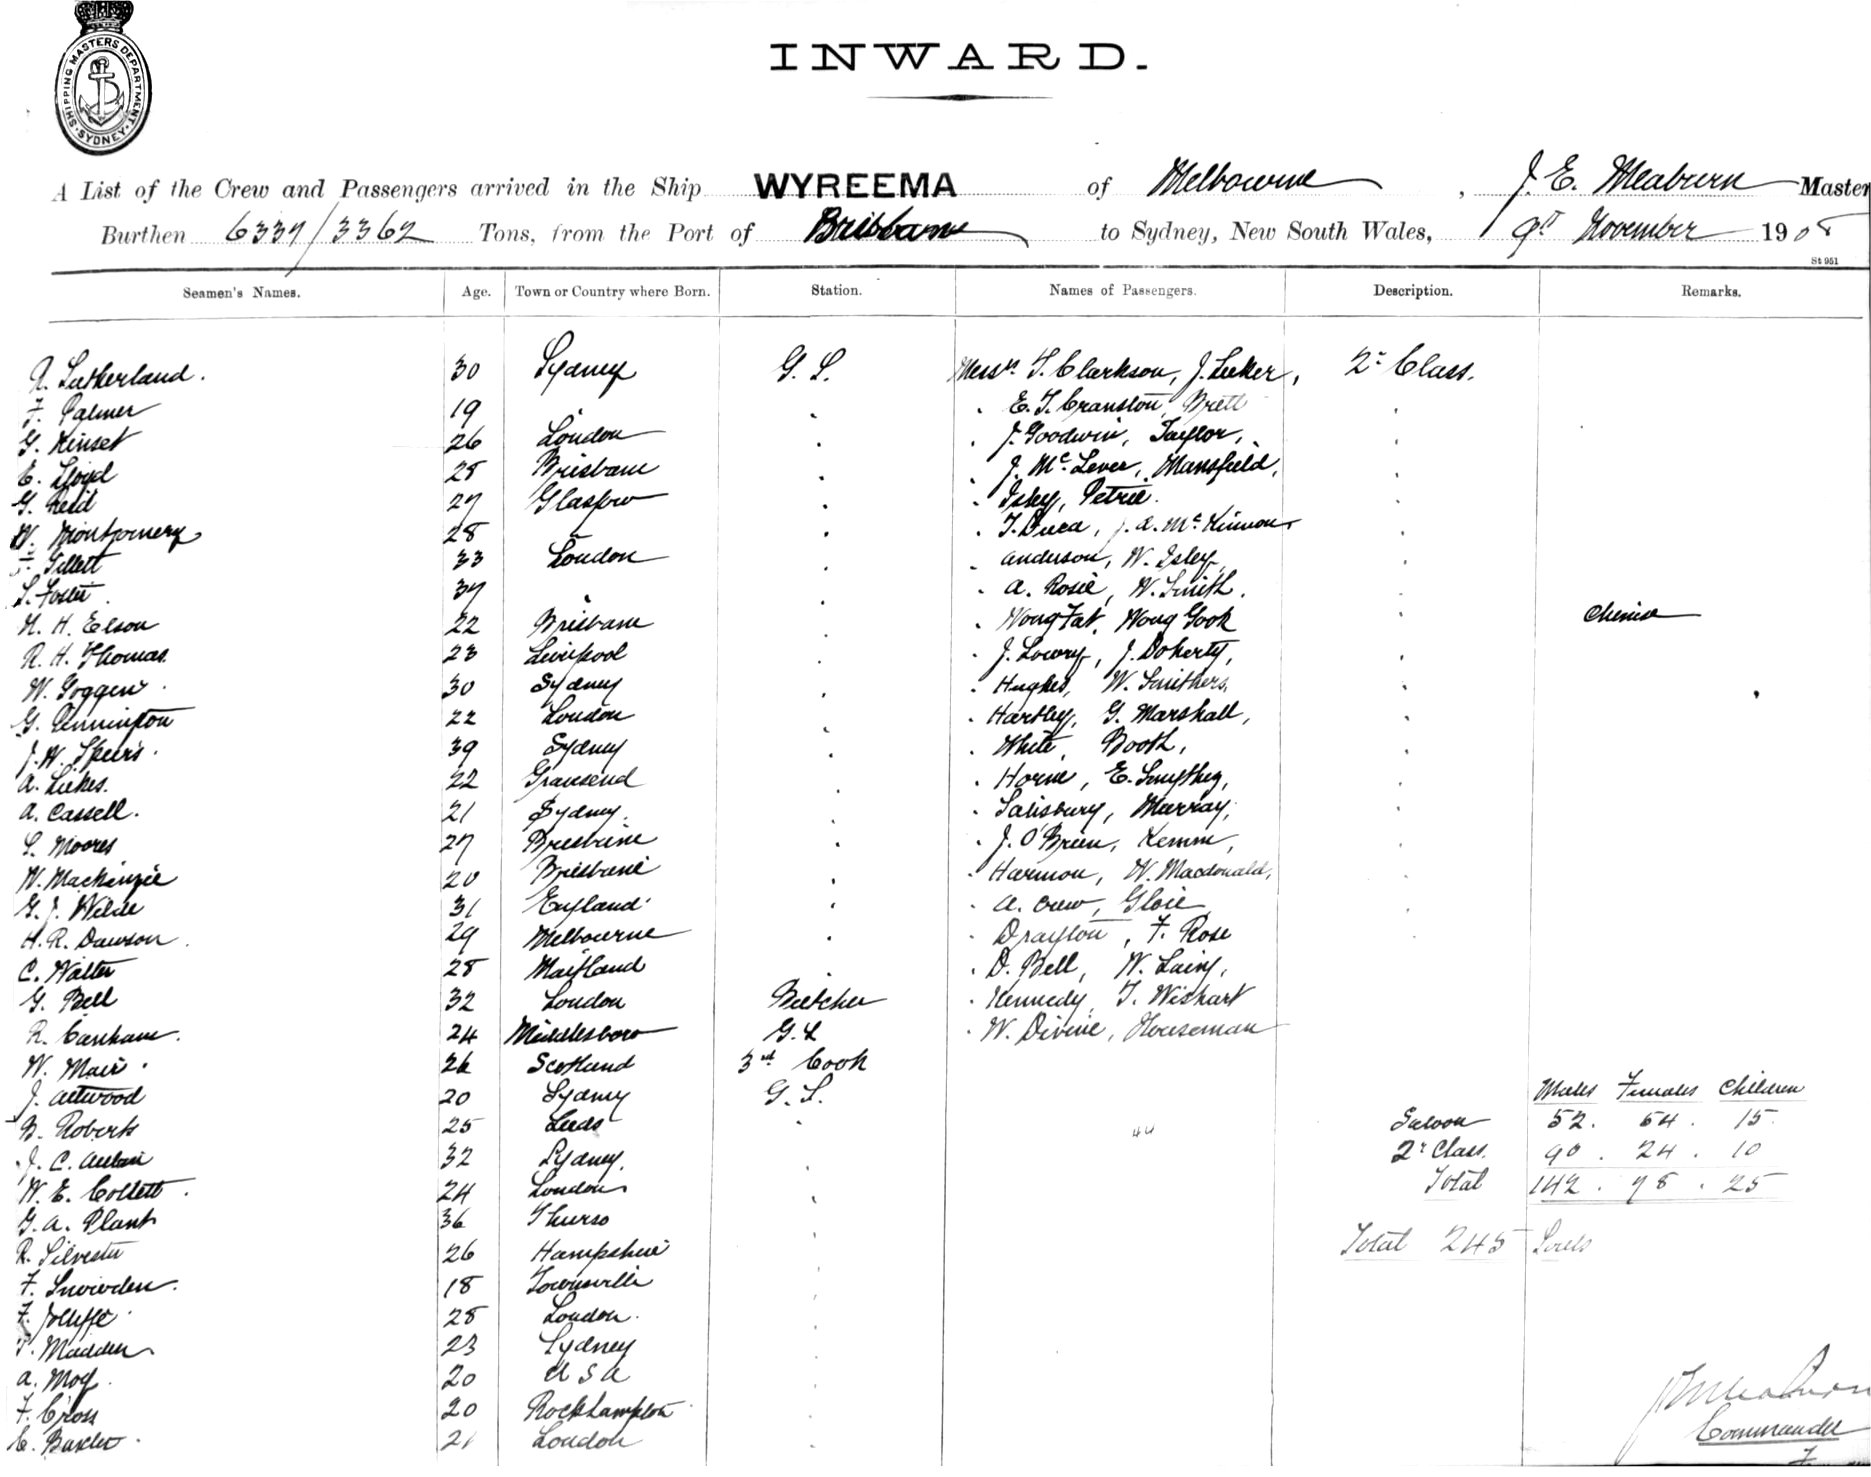 SHIPPING MASTERS DEPARTMENT
SYDNEY
INWARD.
A List of the Crew and Passengers arrived in the Ship WYREEMA of Melbourne, J. E. Meaburn Master
Burthen 6337/3362 Tons, from the Port of Brisbane to Sydney, New South Wales, 9th November 1908
St 951
Seamen's Names. Age. Town or Country where Born. Station. Names of Passengers. Description. Remarks.
R. Sutherland. 30 Sydney G. S. Messrs. T. Clarkson, J. Luker, 2nd Class.
F. Palmer 19 " . E. T. Cranston, Brett
G. Kinset 26 London . J. Goodwin, Taylor,
E. Lloyd 28 Brisbane . J. McLever, Mansfield,
G. Reid 27 Glasgow . Isley, Petrie.
W. Montgomery 28 " . J. A. McKinnon
Gillett 33 London . Anderson, W. Isley,
S. Foster 37 " . A. Rosie, W. Smith.
H. H. Elson 22 Brisbane . Wong Fat, Wong Gook Chinese
R. H. Thomas 23 Liverpool . J. Lowry, J. Doherty,
W. Goggin 30 Sydney . Hughes, W. Smithers,
G. Pennington 22 London . Hartley, G. Marshall,
J. W. Speirs. 39 Sydney . White, Booth,
A. Liekes. 22 Gravesend . Horne, E. Smythey,
A. Cassell. 21 Sydney. . Salisbury, Murray,
S. Moores 27 Brisbane . J. O'Brien, Kemm,
W. Mackenzie 20 Brisbane . Harmon, W. Macdonald,
G. J. Wilde 31 England . A. Crew, Gloie
H. R. Dawson. 29 Melbourne . Drayton, F. Rose
C. Walter 28 Maitland . D. Bell, W. Laing,
G. Bell 32 London Butcher . Kennedy, T. Wishart
R. Canham. 24 Middlesboro G. S. . W. Divine, Houseman
W. Mair. 26 Scotland 3rd Cook
J. Attwood 20 Sydney G. S. Males Females Children
B. Roberts 25 Leeds . 44 Saloon 52. 54. 15
J. C. 32 Sydney. . 2nd Class. 90. 24. 10
W. E. Collett. 24 London . Total 142. 78. 25
G. A. Plant 36 Thurso .
R. Silvester 26 Hampshire . Total 245 Souls
F. Snowden. 18 Townsville .
F. Jolliffe 28 London. .
Madden 23 Sydney .
A. Moy. 20 U S A .
F. Cross 20 Rockhampton .
E. Baxter. 21 London .
J E Meaburn
Commander